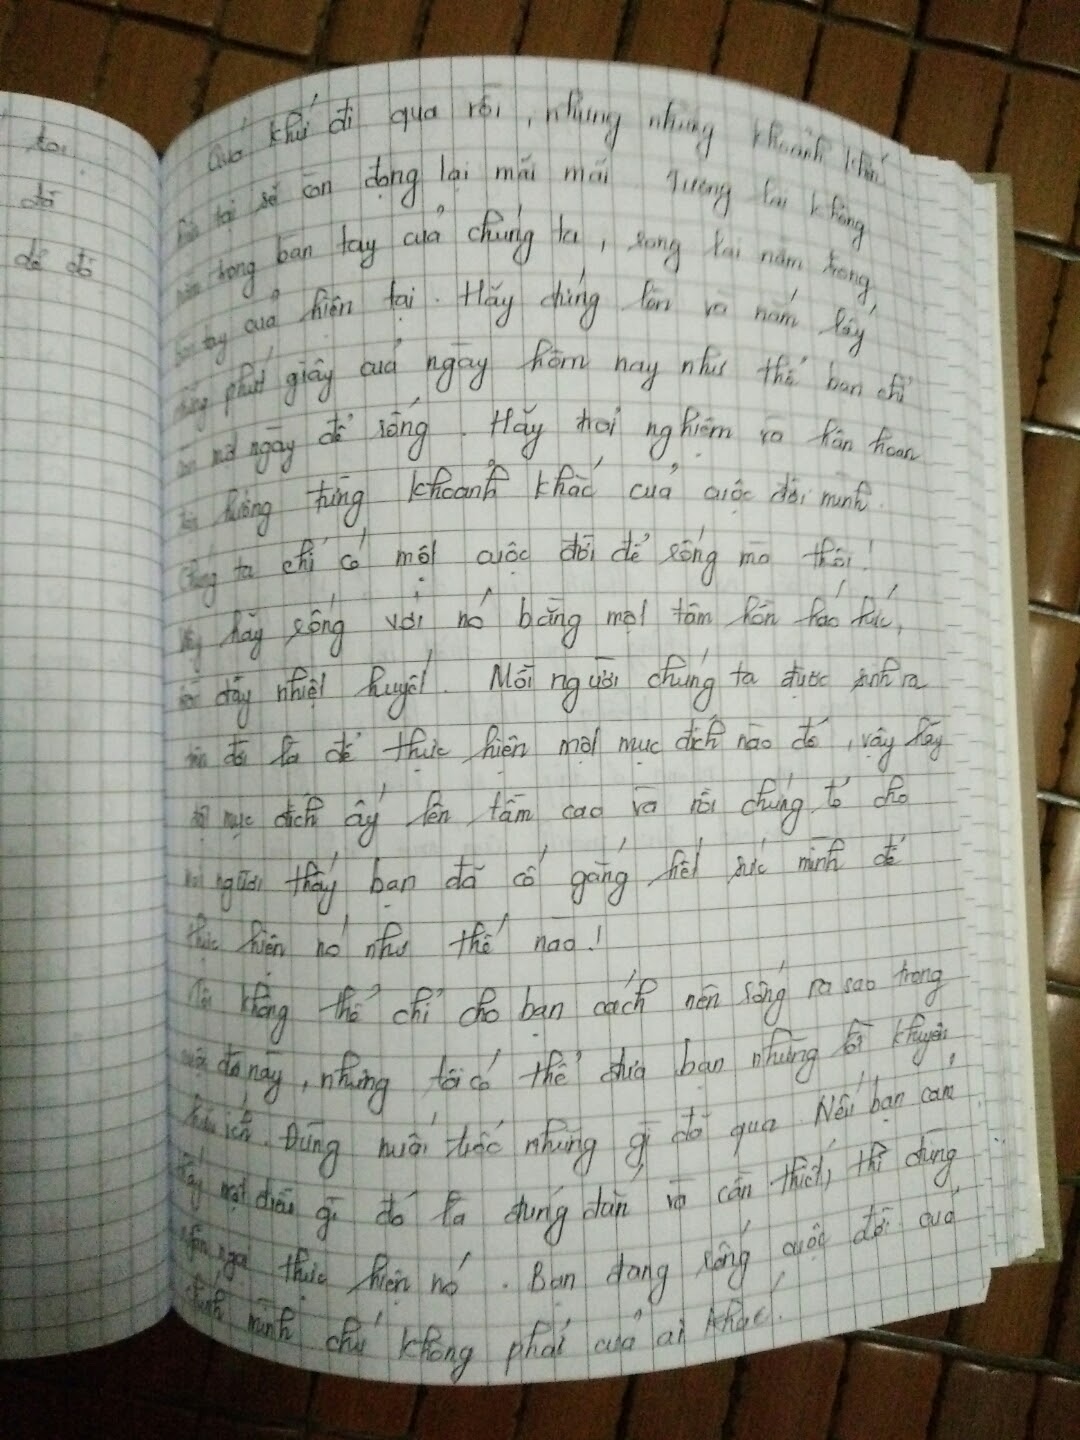 tôi
đã
để đó
Quá khứ đi qua rồi, nhưng những khoảnh khắc
hiện tại sẽ còn đọng lại mãi mãi. Tương lai không
nằm trong bàn tay của chúng ta, song lại nằm trong
bàn tay của hiện tại. Hãy đứng lên và nắm lấy
từng phút giây của ngày hôm nay như thể bạn chỉ
còn một ngày để sống. Hãy trải nghiệm và hân hoan
tận hưởng từng khoảnh khắc của cuộc đời mình.
Chúng ta chỉ có một cuộc đời để sống mà thôi!
Vậy hãy sống với nó bằng một tâm hồn háo hức,
tràn đầy nhiệt huyết. Mỗi người chúng ta được sinh ra
trên đời là để thực hiện một mục đích nào đó, vậy hãy
đặt mục đích ấy lên tầm cao và rồi chứng tỏ cho
mọi người thấy bạn đã cố gắng hết sức mình để
thực hiện nó như thế nào!
Tôi không thể chỉ cho bạn cách nên sống ra sao trong
cuộc đời này, nhưng tôi có thể đưa bạn những lời khuyên
hữu ích. Đừng nuối tiếc những gì đã qua. Nếu bạn cảm
thấy một điều gì đó là đúng đắn và cần thiết, thì đừng
ngần ngại thực hiện nó. Bạn đang sống cuộc đời của
chính mình chứ không phải của ai khác!